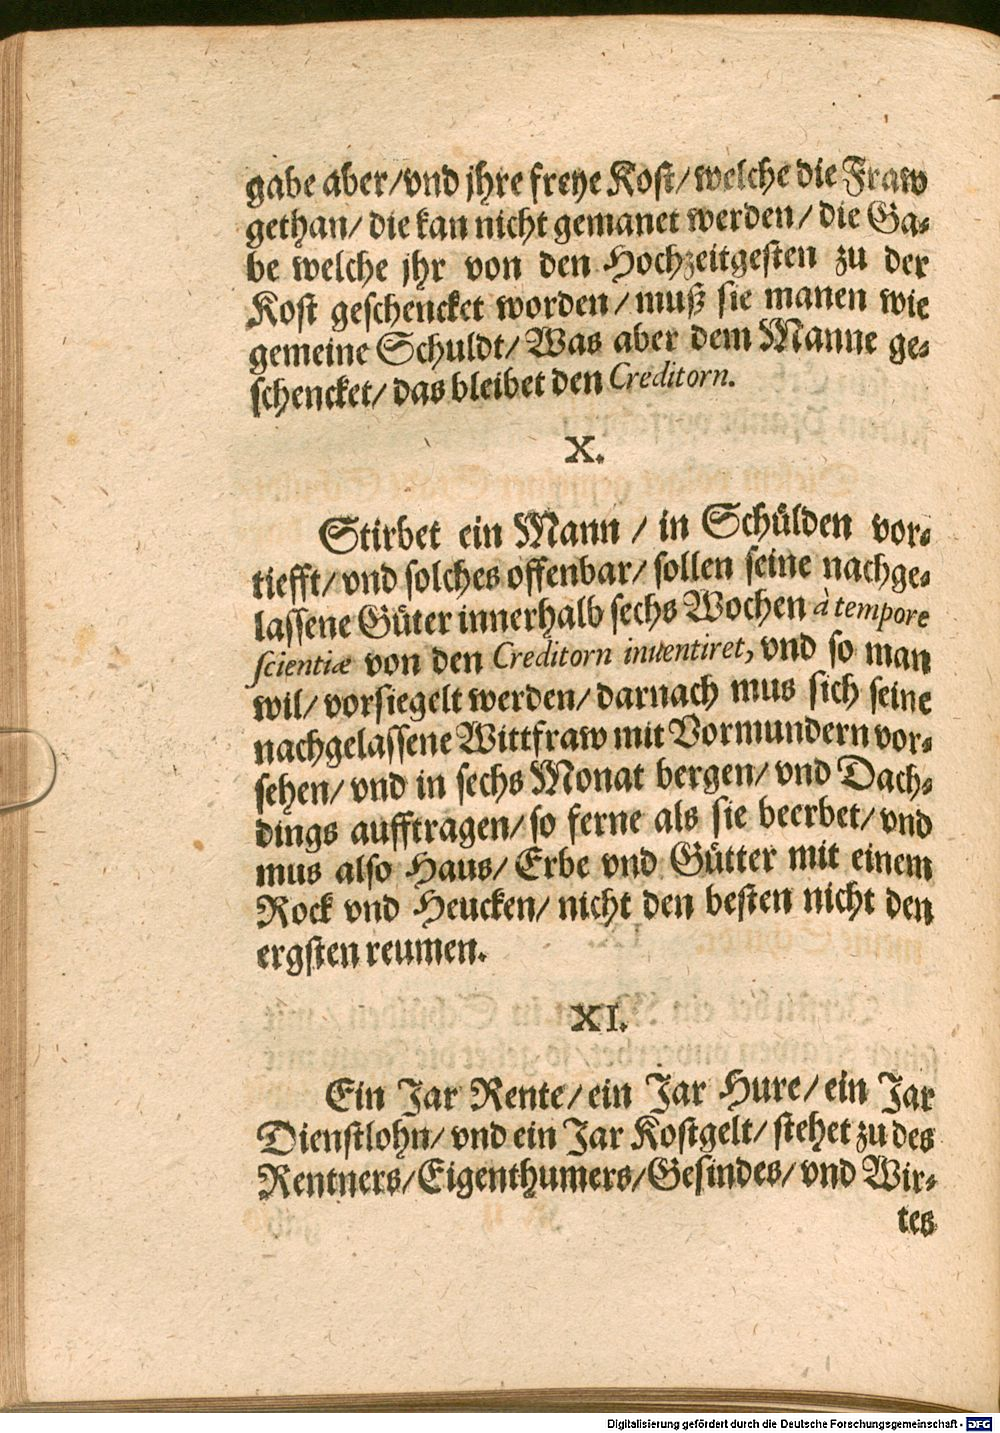 gabe aber/vnd jhre freye Kost/welche die Fraw
gethan/ die kan nicht gemanet werden/ die Ga⸗
be welche jhr von den Hochzeitgesten zu der
Kost geschencket worden/ muß sie manen wie
gemeine Schuldt/ Was aber dem Manne ge⸗
schencket/ das bleibet den Creditorn.
X.
Stirbet ein Mann / in Schülden vor⸗
tiefft/ vnd solches offenbar/ sollen seine nachge⸗
lassene Güter innerhalb sechs Wochen à tempore
scientiæ von den Creditorn inuentiret, vnd so man
wil/ vorsiegelt werden/ darnach mus sich seine
nachgelassene Wittfraw mit Vormundern vor⸗
sehen/ vnd in sechs Monat bergen/ vnd Dach⸗
dings aufftragen/ so ferne als sie beerbet/ vnd
mus also Haus/ Erbe vnd Gütter mit einem
Rock vnd Heucken/ nicht den besten nicht den
ergsten reumen.
XI.
Ein Jar Rente/ ein Jar Hure/ ein Jar
Dienstlohn/ vnd ein Jar Kostgelt/ stehet zu des
Rentners/Eigenthumers/Gesindes/ vnd Wir⸗
tes
Digitalisierung gefördert durch die Deutsche Forschungsgemeinschaft - DFG